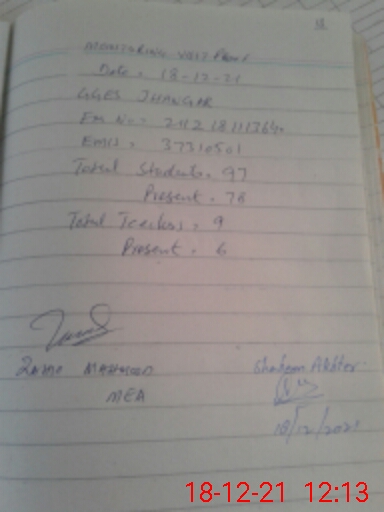 MONITORING VISIT PROOF
Date: 18-12-21
GGES JHANGAR
EMIS: 37310501
Total Students: 97
Present: 78
Total Teachers: 9
Present: 6
MAHMOOD
MEA
Akhter
18/12/2021
18-12-21 12:13